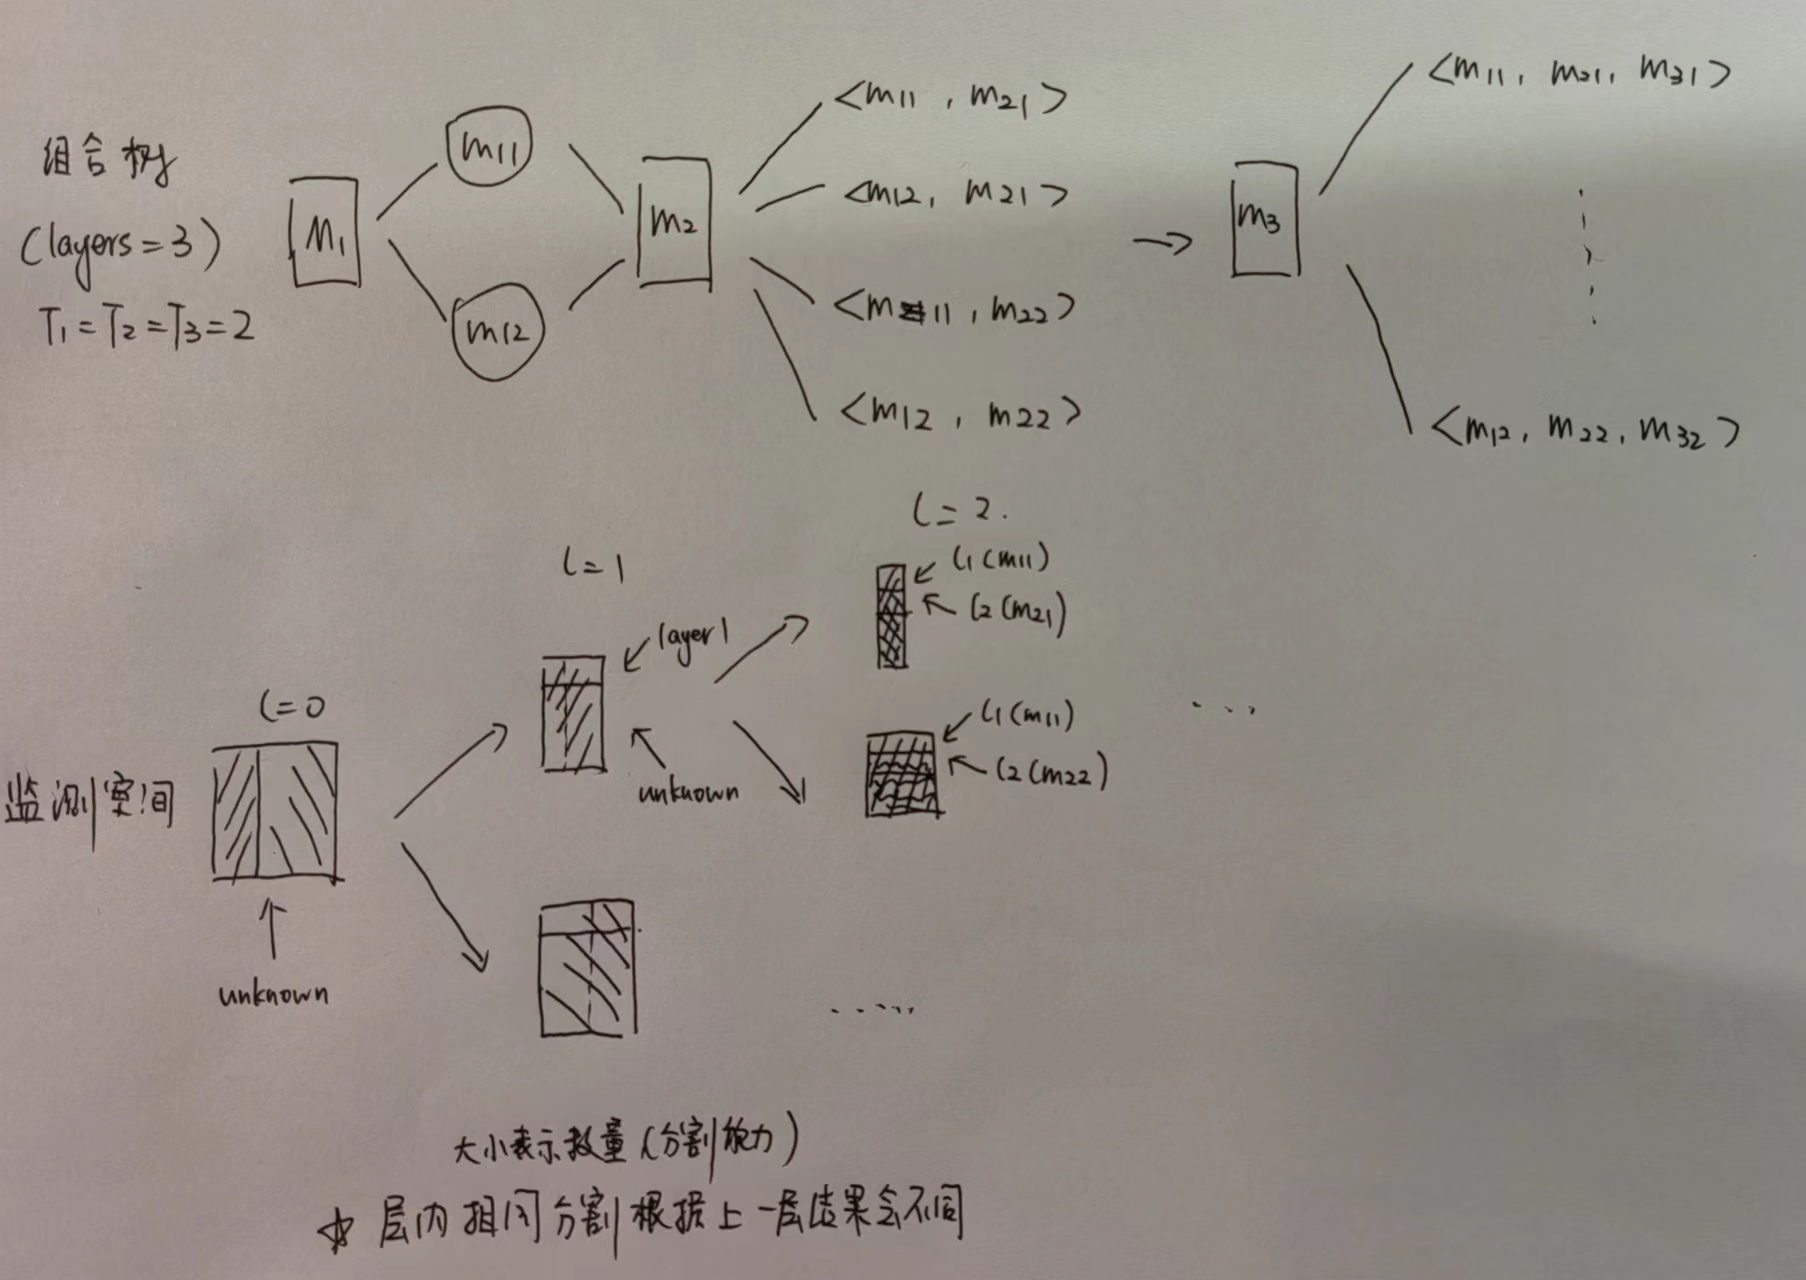 组合树
(layers=3)
T1=T2=T3=2
M1
m11
m12
m2
<m11, m21>
<m12, m21>
<m11, m22>
<m12, m22>
→
m3
<m11, m21, m31>
<m12, m22, m32>
监测空间
l=0
unknown
l=1
layer1
unknown
l=2.
l1(m11)
l2(m21)
l1(m11)
l2(m22)
...
.....
大小表示数量(分割能力)
☆ 层内相同分割根据上一层结果会不同